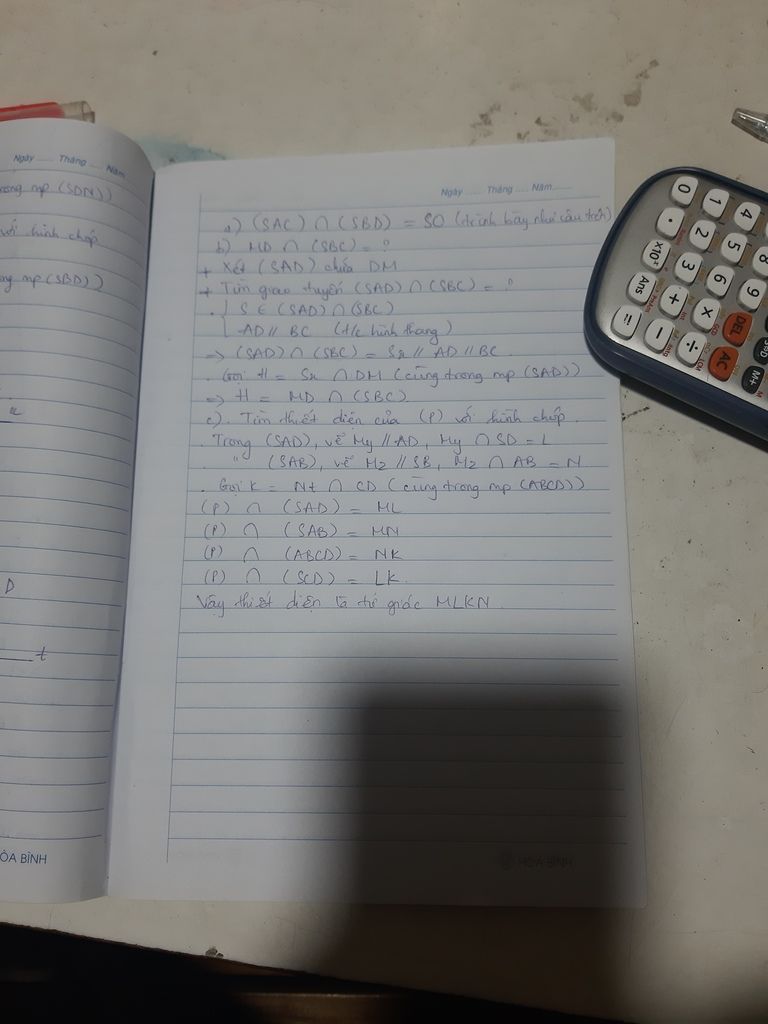 Ngày ..... Tháng ..... Năm
mp (SDN))
với hình chóp
mp (SBD))
D
t
ÒA BÌNH
Ngày ..... Tháng ..... Năm.....
a) (SAC) ∩ (SBD) = SO (trình bày như câu trên)
b) MD ∩ (SBC) = ?
+ Xét (SAD) chứa DM
+ Tìm giao tuyến (SAD) ∩ (SBC) = ?
. { S ∈ (SAD) ∩ (SBC)
AD // BC (t/c hình thang)
=> (SAD) ∩ (SBC) = Sx // AD // BC
. Gọi H = Sx ∩ DM (cùng trong mp (SAD))
=> H = MD ∩ (SBC).
c). Tìm thiết diện của (P) với hình chóp.
. Trong (SAD), vẽ My // AD, My ∩ SD = L
" (SAB), vẽ Mz // SB, Mz ∩ AB = N
. Gọi K = Nt ∩ CD (cùng trong mp (ABCD))
(P) ∩ (SAD) = ML
(P) ∩ (SAB) = MN
(P) ∩ (ABCD) = NK
(P) ∩ (SCD) = LK.
Vậy thiết diện là tứ giác MLKN.
HÒA BÌNH
0
1
4
.
2
5
8
x10ˣ
3
6
9
Ans
+
x
DEL
=
−
÷
AC
M+